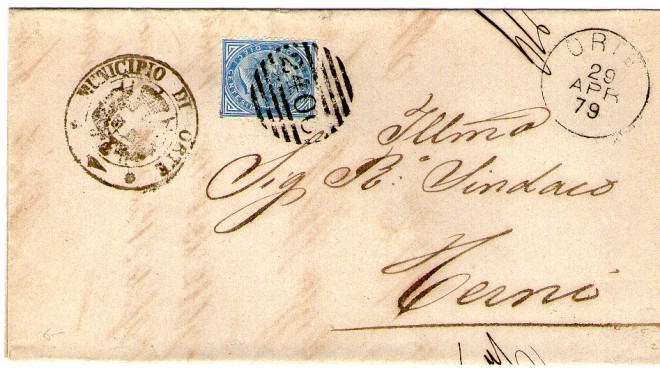 MUNICIPIO DI ORTE
DIECI CENT.
ORTE
29
APR
79
Illmo
Sig. R.º Sindaco
Terni